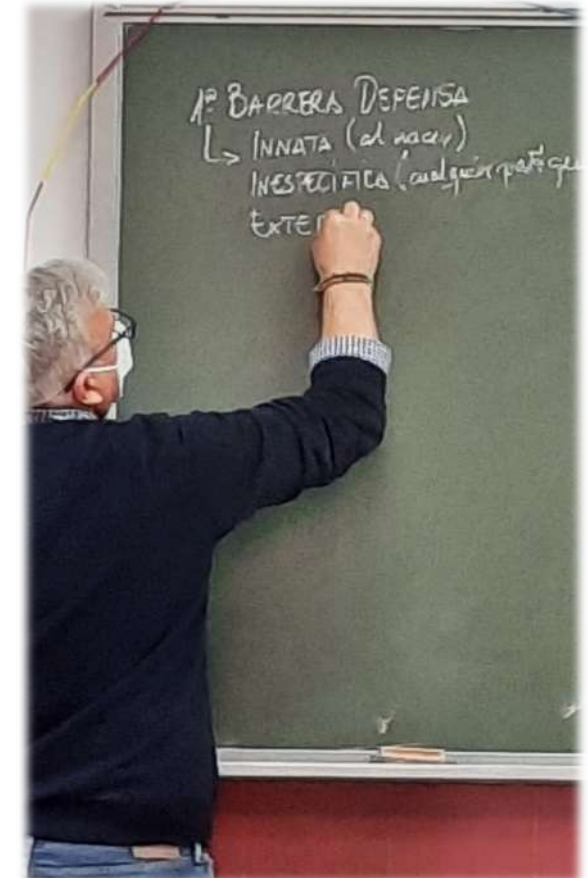 1ª BARRERA DEFENSA
↳ INNATA (al nacer)
INESPECÍFICA (cualquier
EXTE